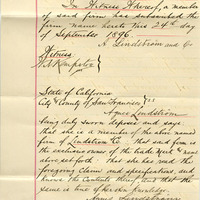 In Witness Whereof, a member
of said firm has subscribed the
firm name hereto this 24th day
of September 1896.
A Lindstrom and Co
Witness
State of California
City & County of San Francisco } ss
Agnes Lindstrom
being duly sworn deposes and says
that she is a member of the above named
firm of Lindstrom Co. That said firm is
the exclusive owner of the trade mark
above set forth. that she has read the
foregoing Claim and specifications and
knows the Contents thereof and that the
same is true of her own knowledge.
Agnes Lindstrom